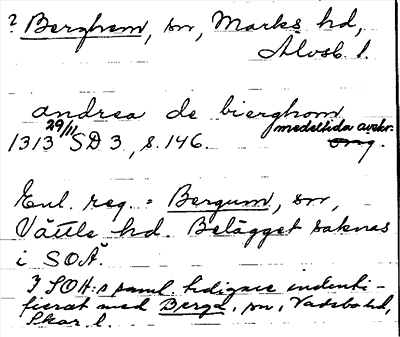 ? Berghem, sn, Marks hd,
Älvsb. l.
andrea de bierghom
1313 29/11 SD 3, s. 146. medeltida avskr.
orig.
Enl. reg. = Bergum, sn,
Vättle hd. Belägget saknas
i SOÄ.
I SOH:s saml. tidigare indenti-
fierat med Berga, sn, Vadsbo hd,
Skar. l.